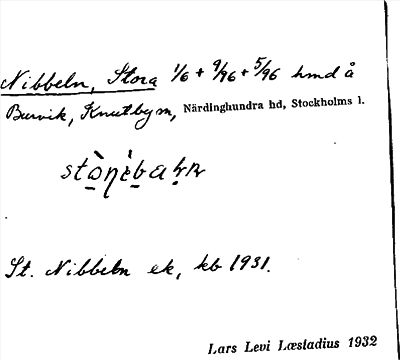 Nibbeln, Stora 1/6 + 9/96 + 5/96 hmd å
Burvik, Knutby sn, Närdinghundra hd, Stockholms l.
St. Nibbeln ek, kb 1931.
Lars Levi Læstadius 1932